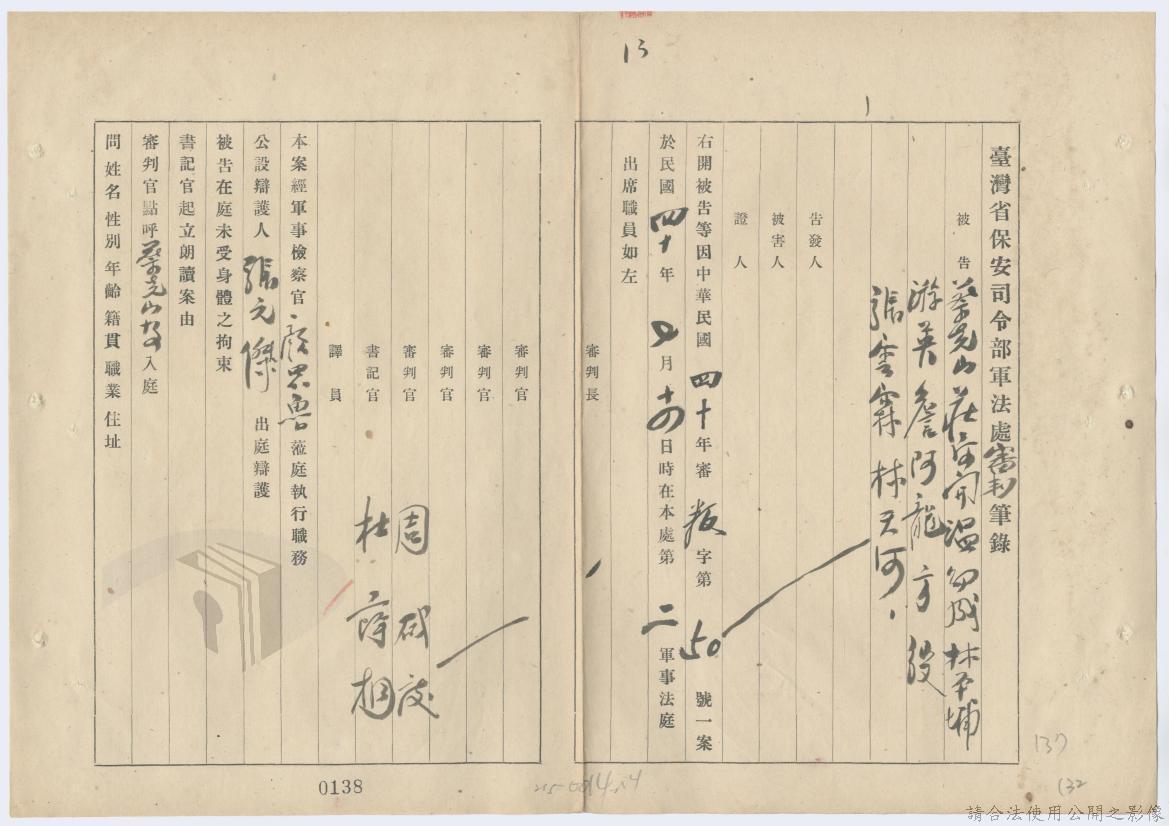 13
臺灣省保安司令部軍法處審判筆錄
被告 蔡克山 莊 開 溫 成 林 埔
游英 詹阿龍 方 俊
張 霖 林天河
告發人
被害人
證人
右開被告等因中華民國四十年審 叛 字第 50 號一案
於民國四十年 月 日時在本處第二軍事法庭
出席職員如左
審判長
審判官
審判官
審判官
審判官 周咸慶
書記官 杜 桐
譯員
本案經軍事檢察官 蒞庭執行職務
公設辯護人 張元傑 出庭辯護
被告在庭未受身體之拘束
書記官起立朗讀案由
審判官點呼蔡克山 入庭
問姓名 性別 年齡 籍貫 職業 住址
0138
137
132
請合法使用公開之影像